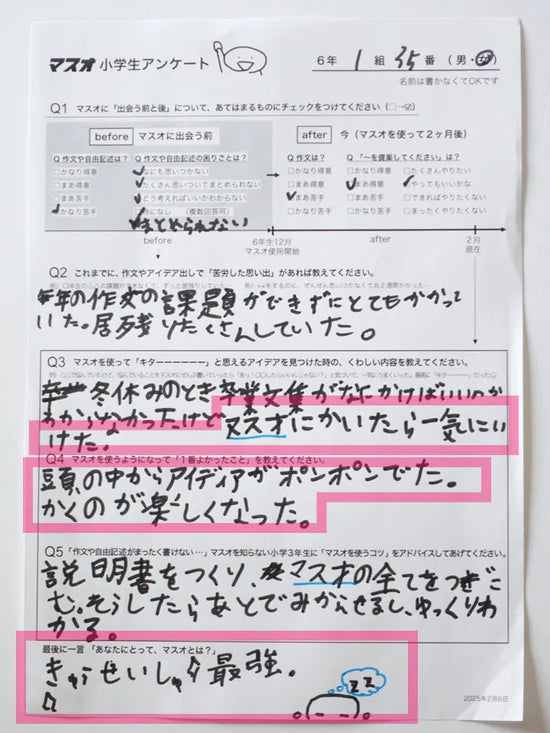 マスオ 小学生アンケート
6年 1 組 35番 (男・女)
名前は書かなくてOKです
Q1 マスオに「出会う前と後」について、あてはまるものにチェックをつけてください(□→☑)
before マスオに出会う前
after 今(マスオを使って2ヶ月後)
Q 作文や自由記述は?
□かなり得意
□まあ得意
□まあ苦手
□かなり苦手
Q 作文や自由記述の困りごとは?
□なにも思いつかない
□たくさん思いついてまとめられない
□どう考えればいいかわからない
□特になし (複数回答可)
まとめられない
Q 作文は?
□かなり得意
□まあ得意
□まあ苦手
□かなり苦手
Q 「〜を提案してください」は?
□たくさんやりたい
□やってもいいかな
□できればやりたくない
□まったくやりたくない
before
6年生12月
マスオ使用開始
after
2月
現在
Q2 これまでに、作文やアイデア出しで「苦労した思い出」があれば教えてください。
年の作文の課題ができずにとてもかかって
いた。居残りたくさんしていた。
Q3 マスオを使って「キターーーーーー」と思えるアイデアを見つけた時の、くわしい内容を教えてください。
冬休みのとき卒業文集がなにかけばいいのか
わからなかったけどマスオにかいたら一気にい
けた。
Q4 マスオを使うようになって「1番よかったこと」を教えてください。
頭の中からアイディアがポンポンでた。
かくのが楽しくなった。
Q5 「作文や自由記述がまったく書けない…」マスオを知らない小学3年生に「マスオを使うコツ」をアドバイスしてあげてください。
説明書をつくり、マスオの全てをつぎこ
む。そうしたらあとでみかえせるし、ゆっくりわ
かる。
最後に一言「あなたにとって、マスオとは?」
きゅうせいしゅ 最強。
zz
2025年2月6日